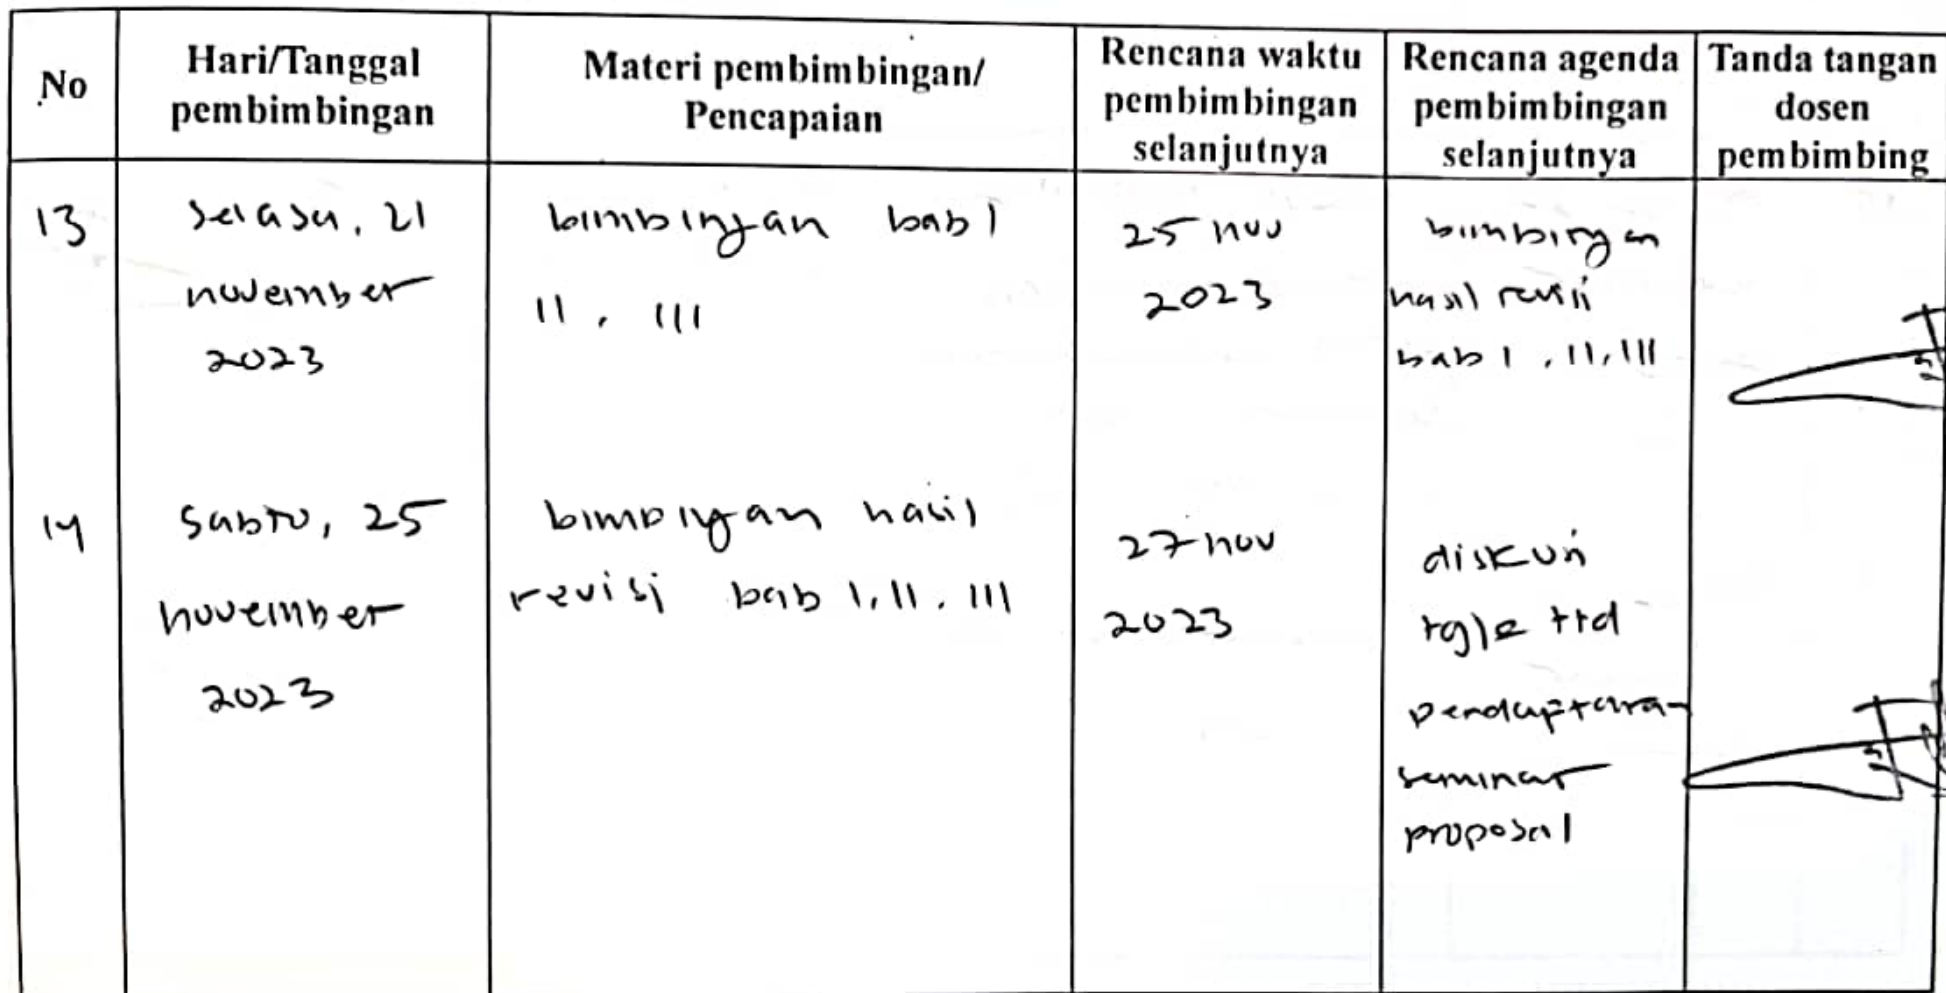 No
Hari/Tanggal
pembimbingan
Materi pembimbingan/
Pencapaian
Rencana waktu
pembimbingan
selanjutnya
Rencana agenda
pembimbingan
selanjutnya
Tanda tangan
dosen
pembimbing
13
Selasa, 21
november
2023
bimbingan bab I
II, III
25 nov
2023
bimbingan
hasil revisi
bab I, II, III
14
Sabtu, 25
november
2023
bimbingan hasil
revisi bab I, II, III
27 nov
2023
diskusi
ttd
pendaptaran
seminar
proposal